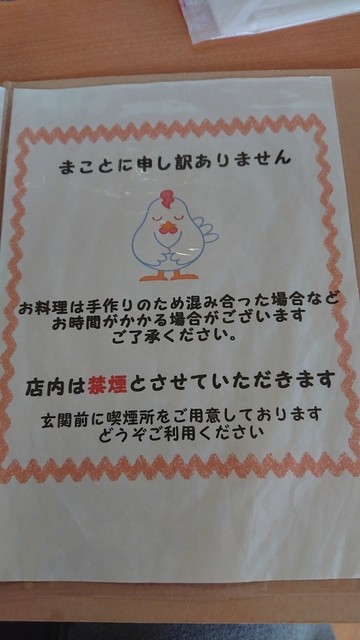 まことに申し訳ありません
お料理は手作りのため混み合った場合など
お時間がかかる場合がございます
ご了承ください。
店内は禁煙とさせていただきます
玄関前に喫煙所をご用意しております
どうぞご利用ください